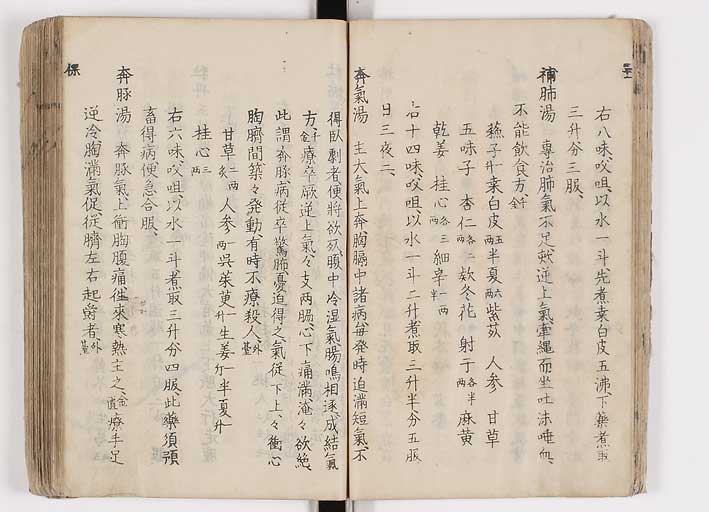 右八味、㕮咀以水一斗、先煮桒白皮五沸、下藥煮取
三升分三服、
補肺湯 専治肺氣不足欬逆上氣、牽繩而坐、吐沫唾血、
不能飲食方
蘓子升一 桒白皮五両 半夏六両 紫苑 人参 甘草
五味子 杏仁各二両 欵冬花 射干各半両 麻黄
乾姜 桂心各三両 細辛一両半
右十四味、㕮咀以水一斗二升煮取三升半分五服
日三夜二、
奔氣湯 主大氣上奔胸膈中諸病毎発時迫滿短氣、不
得臥劇者、便將欲死、腹中冷湿氣腸鳴相逐、成結氣
方、千金 療卒厥逆上氣、々支両脇、心下痛滿、淹々欲絶、
此謂奔豚病従卒驚肺憂迫得之、氣従下上、々衝心
胸臍間築々発動有時不療殺人、外臺
甘草二両炙 人参二両 呉茱萸一升 生姜一斤 半夏一升
桂心三両
右六味、㕮咀、以水一斗煮取三升分四服此藥須預
畜得病便急合服、
奔豚湯 奔豚氣、上衝胸腹痛徃來寒熱主之、金匱 療手足
逆冷胸滿氣促、従臍左右起欝者外臺